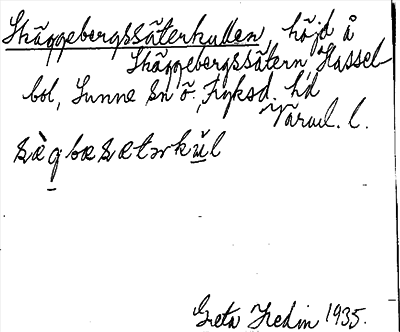 Skäggebergssäterkullen, höjd å
Skäggebergssätern Hassel-
bol, Sunne sn ö., Fryksd. hd
Värml. l.
sὲg bæsætərkŭl
Greta Hedin 1935.